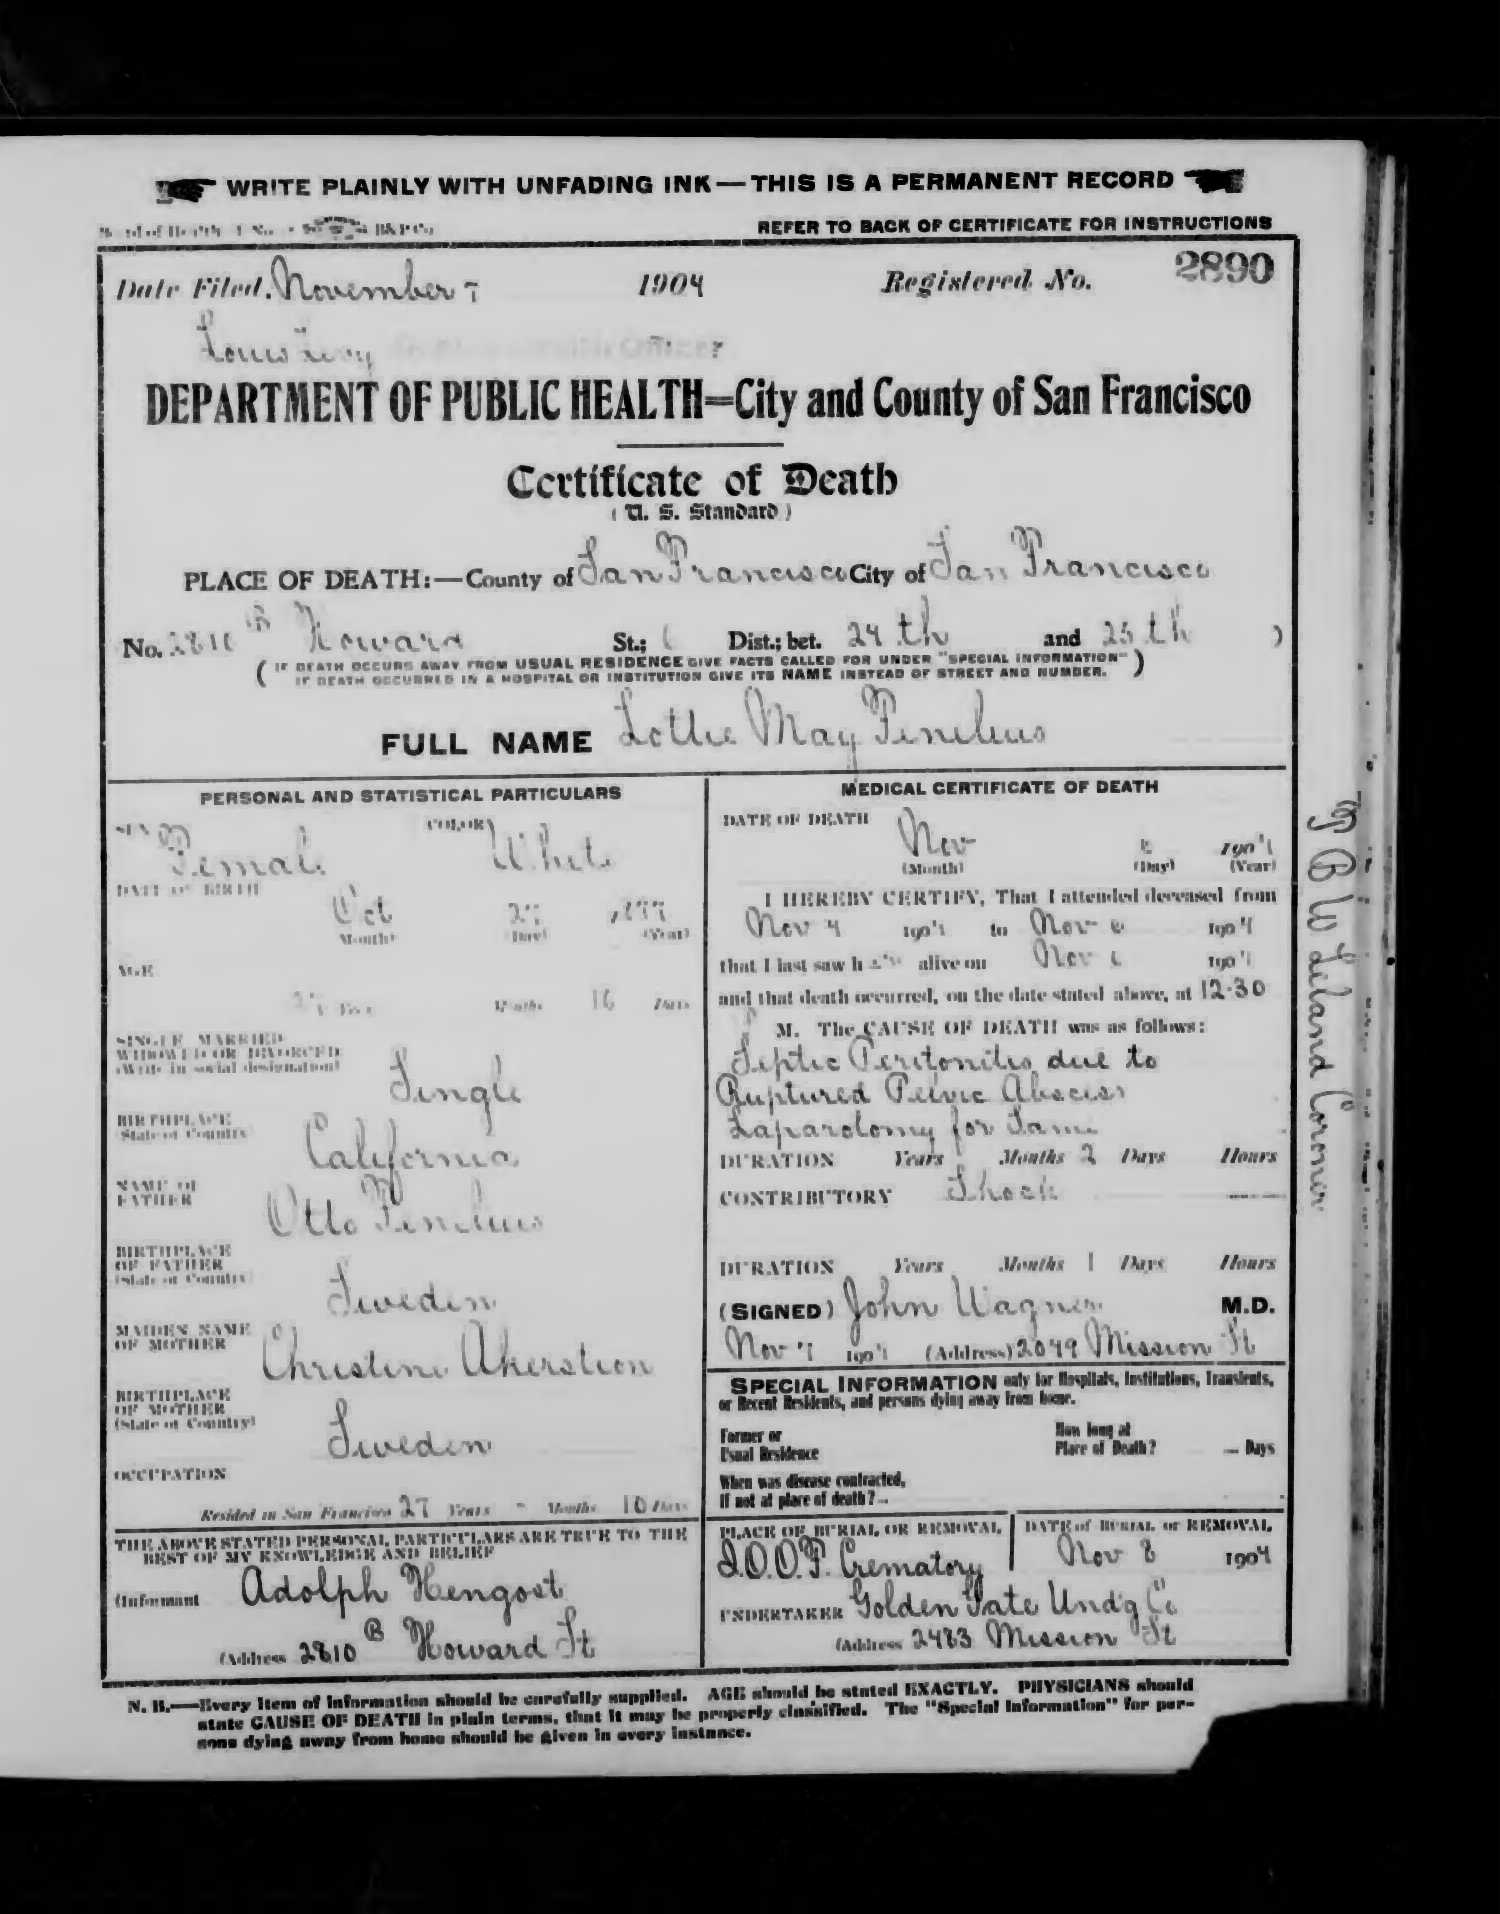 WRITE PLAINLY WITH UNFADING INK—THIS IS A PERMANENT RECORD
REFER TO BACK OF CERTIFICATE FOR INSTRUCTIONS
Date Filed, November 7 1904 Registered No. 2890
Louis Levy
DEPARTMENT OF PUBLIC HEALTH=City and County of San Francisco
Certificate of Death
(U. S. Standard)
PLACE OF DEATH:—County of San Francisco City of San Francisco
No. 2810 B Howard St.; Dist.; bet. 24th and 25th )
( IF DEATH OCCURS AWAY FROM USUAL RESIDENCE GIVE FACTS CALLED FOR UNDER "SPECIAL INFORMATION" )
IF DEATH OCCURRED IN A HOSPITAL OR INSTITUTION GIVE ITS NAME INSTEAD OF STREET AND NUMBER.
FULL NAME Lottie May Fenelius
PERSONAL AND STATISTICAL PARTICULARS
SEX Female COLOR White
DATE OF BIRTH
Oct 27 1877
(Month) (Day) (Year)
AGE
27 Years Months 10 Days
SINGLE, MARRIED
WIDOWED OR DIVORCED
(Write in social designation)
Single
BIRTHPLACE
(State or Country)
California
NAME OF
FATHER
Otto Fenelius
BIRTHPLACE
OF FATHER
(State or Country)
Sweden
MAIDEN NAME
OF MOTHER
Christine Akerstion
BIRTHPLACE
OF MOTHER
(State or Country)
Sweden
OCCUPATION
Resided in San Francisco 27 Years - Months 10 Days
THE ABOVE STATED PERSONAL PARTICULARS ARE TRUE TO THE
BEST OF MY KNOWLEDGE AND BELIEF
(Informant Adolph Hengost
(Address 2810 B Howard St
MEDICAL CERTIFICATE OF DEATH
DATE OF DEATH
Nov 6 1904
(Month) (Day) (Year)
I HEREBY CERTIFY, That I attended deceased from
Nov 4 1904 to Nov 6 1904
that I last saw her alive on Nov 6 1904
and that death occurred, on the date stated above, at 12-30
M. The CAUSE OF DEATH was as follows:
Septic Peritonitis due to
Ruptured Pelvic Abscess
Laparotomy for Same
DURATION Years Months 2 Days Hours
CONTRIBUTORY Shock
DURATION Years Months 1 Days Hours
(SIGNED) John Wagner M.D.
Nov 7 1904 (Address) 2049 Mission St
SPECIAL INFORMATION only for Hospitals, Institutions, Transients,
or Recent Residents, and persons dying away from home.
Former or
Usual Residence
How long at
Place of Death? — Days
When was disease contracted,
If not at place of death? —
PLACE OF BURIAL OR REMOVAL
I.O.O.F. Crematory
DATE of BURIAL or REMOVAL
Nov 8 1904
UNDERTAKER Golden Gate Undg Co
(Address 2483 Mission St
N. B.—Every item of information should be carefully supplied. AGE should be stated EXACTLY. PHYSICIANS should
state CAUSE OF DEATH in plain terms, that it may be properly classified. The "Special Information" for per-
sons dying away from home should be given in every instance.
B W Leland Coroner